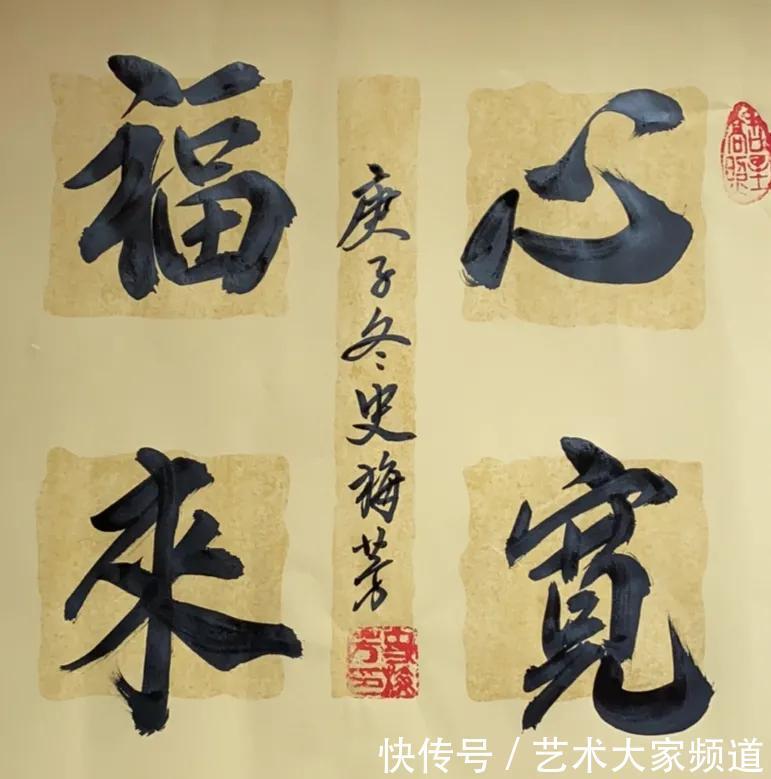 心寬
福來
庚子冬史梅芳
史梅芳印
快传号 / 艺术大家频道